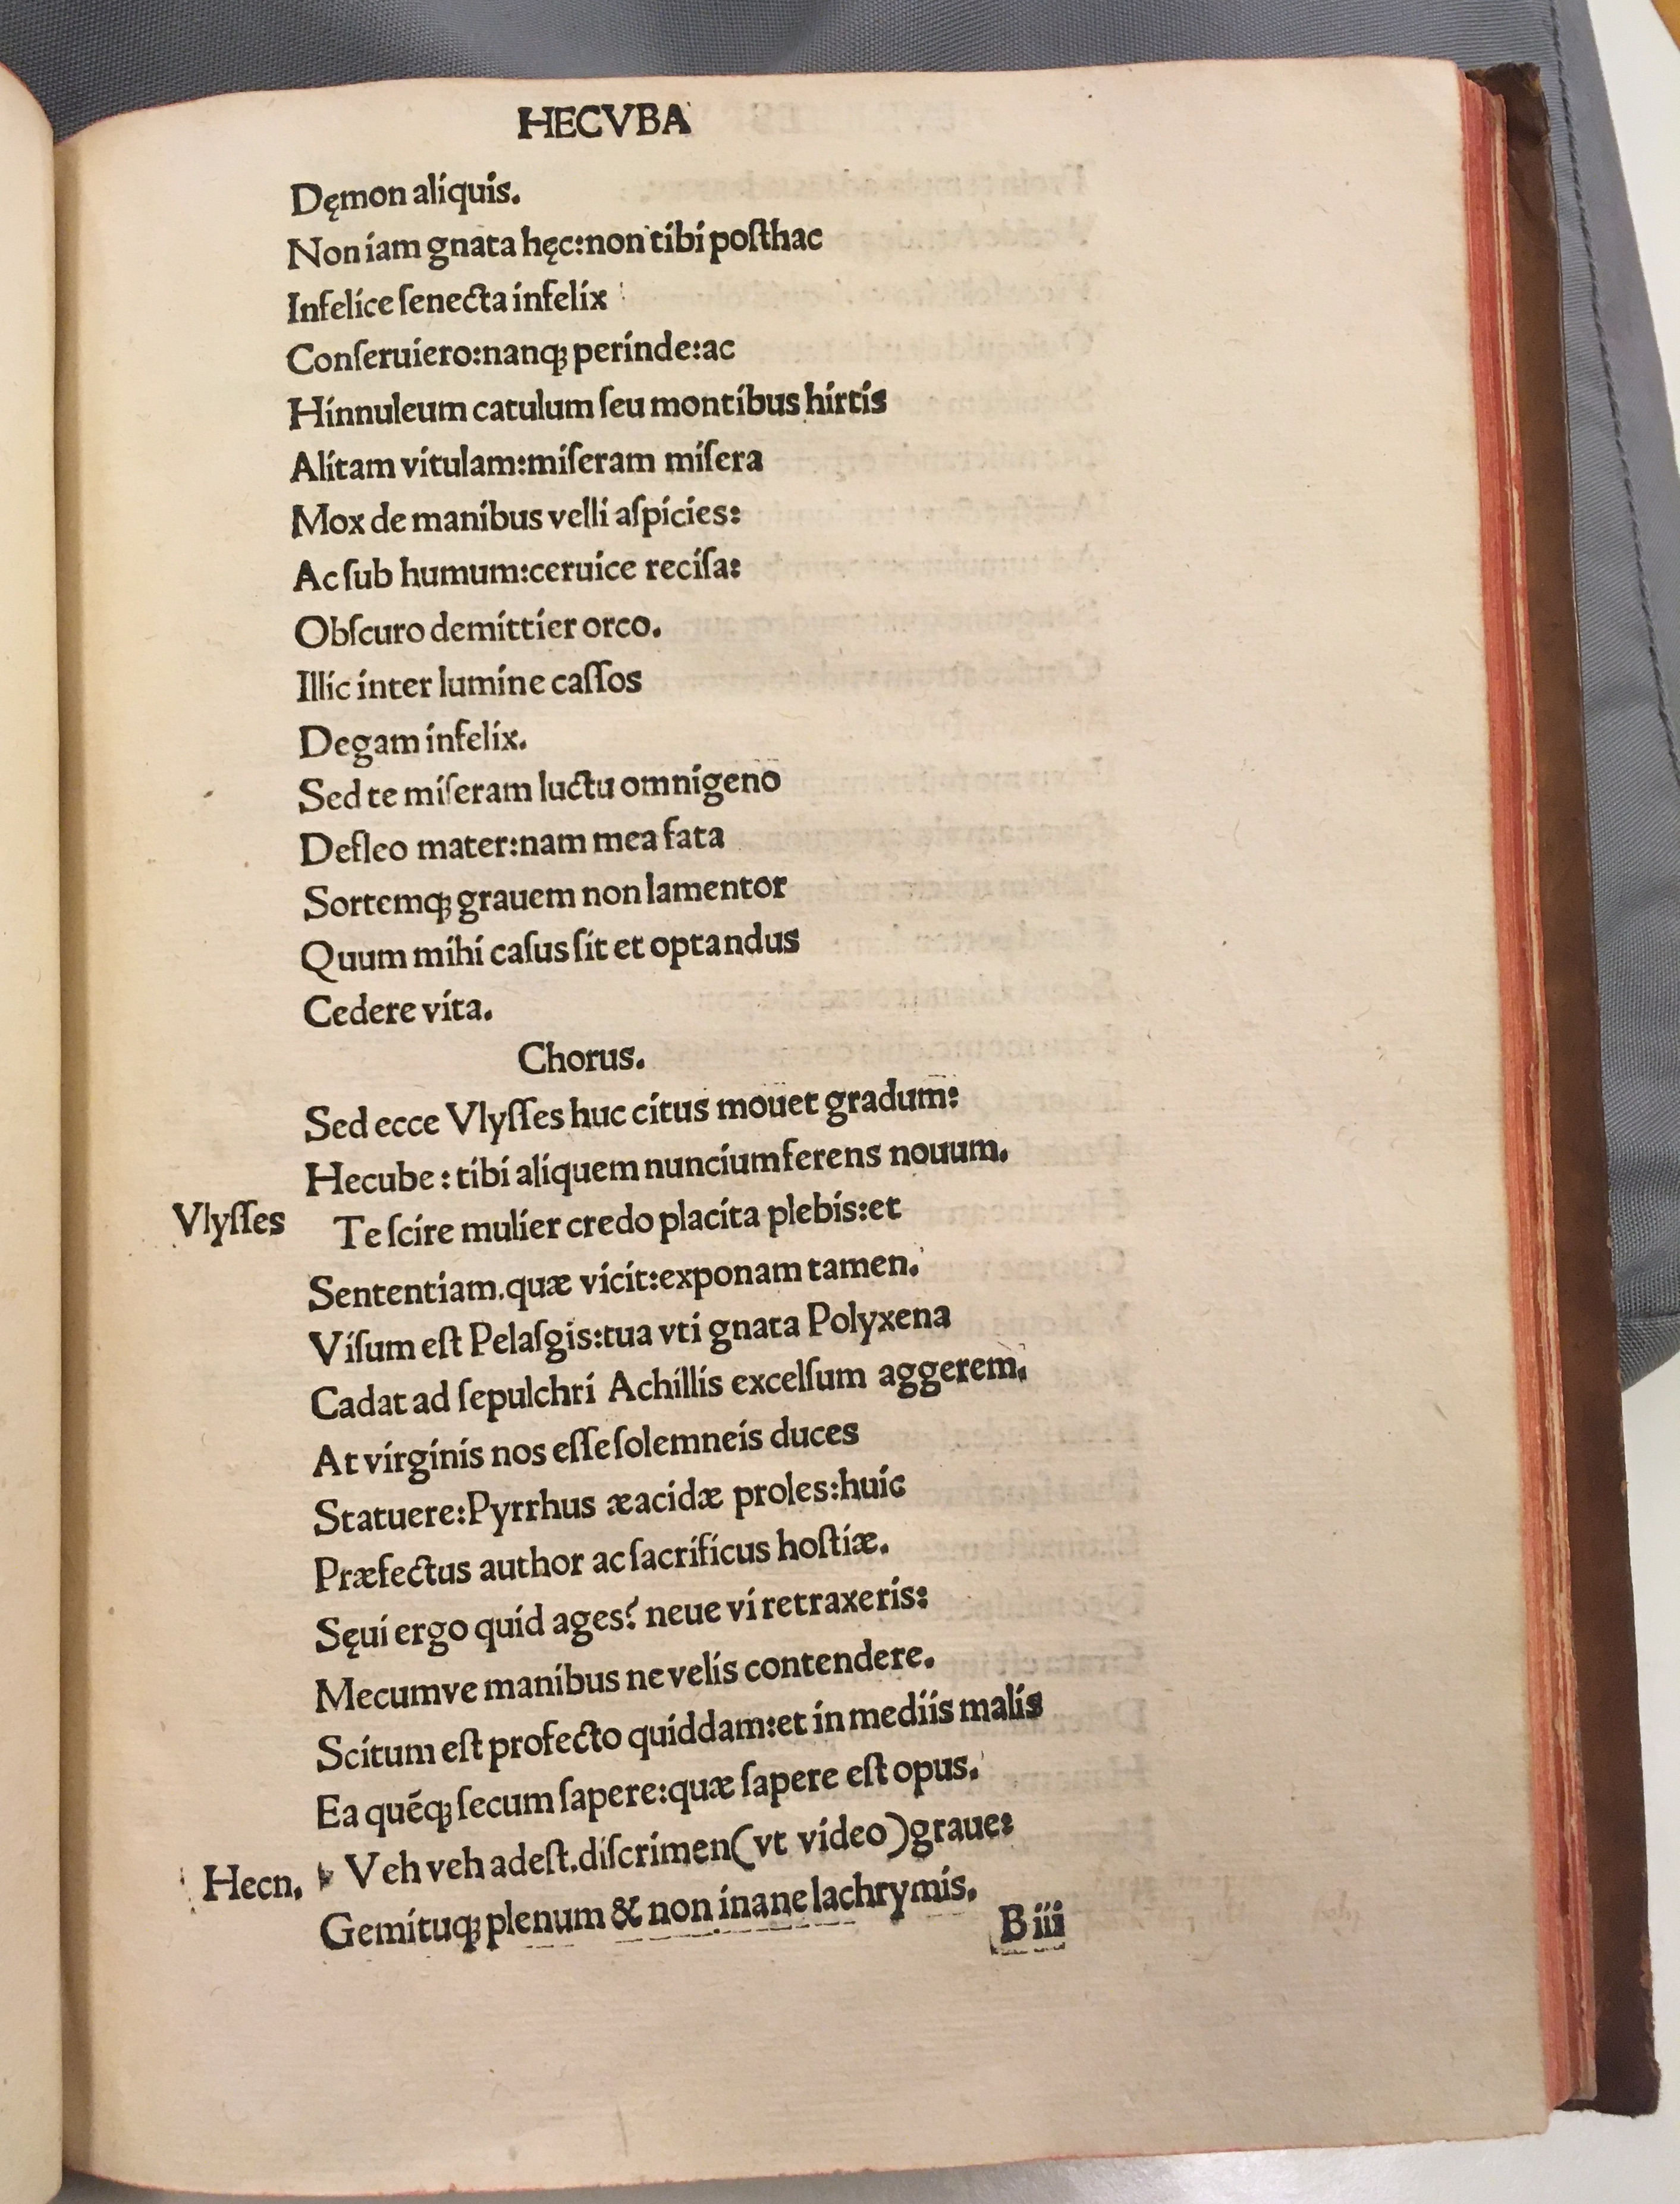 HECVBA
Dęmon aliquis.
Non iam gnata hęc:non tibi poſthac
Infelice ſenecta infelix
Conſeruiero:nanꝗ perinde:ac
Hinnuleum catulum ſeu montibus hirtis
Alitam vitulam:miſeram miſera
Mox de manibus velli aſpicies:
Ac ſub humum:ceruice reciſa:
Obſcuro demittier orco.
Illic inter lumine caſſos
Degam infelix.
Sed te miſeram luctu omnigeno
Defleo mater:nam mea fata
Sortemꝗ grauem non lamentor
Quum mihi caſus ſit et optandus
Cedere vita.
Chorus.
Sed ecce Vlyſſes huc citus mouet gradum:
Hecube : tibi aliquem nuncium ferens nouum.
Vlyſſes Te ſcire mulier credo placita plebis:et
Sententiam.quæ vicit:exponam tamen.
Viſum eſt Pelaſgis:tua vti gnata Polyxena
Cadat ad ſepulchri Achillis excelſum aggerem.
At virginis nos eſſe ſolemneis duces
Statuere:Pyrrhus æacidæ proles:huic
Præfectus author ac ſacrificus hoſtiæ.
Sęui ergo quid ages? neue vi retraxeris:
Mecumve manibus ne velis contendere.
Scitum eſt profecto quiddam:et in mediis malis
Ea quēꝗ ſecum ſapere:quæ ſapere eſt opus.
Hecn. Veh veh adeſt.diſcrimen(vt video)graue:
Gemituꝗ plenum & non inane lachrymis.
B iii